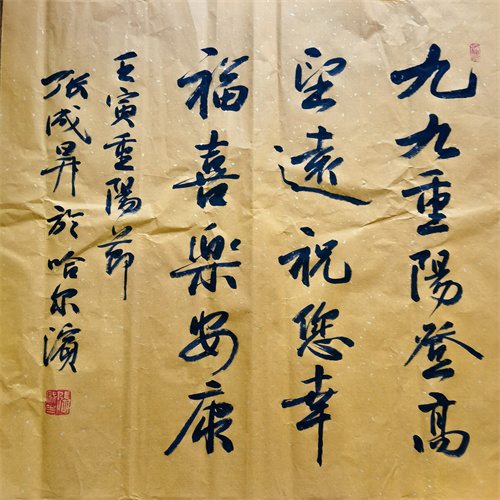 九九重陽登高
望遠祝您幸
福喜樂安康
壬寅重陽節
張成昇於哈尔濱